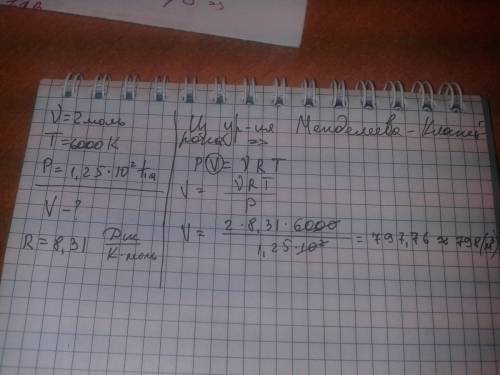 ν = 2 моль
T = 6000 K
P = 1,25 · 10² Па
V - ?
R = 8,31 Дж / К · моль
Из ур-ия Менделеева - Клапей
рона =>
PV = νRT
V = νRT / P
V = 2 · 8,31 · 6000 / 1,25 · 10² = 797,76 ≈ 798